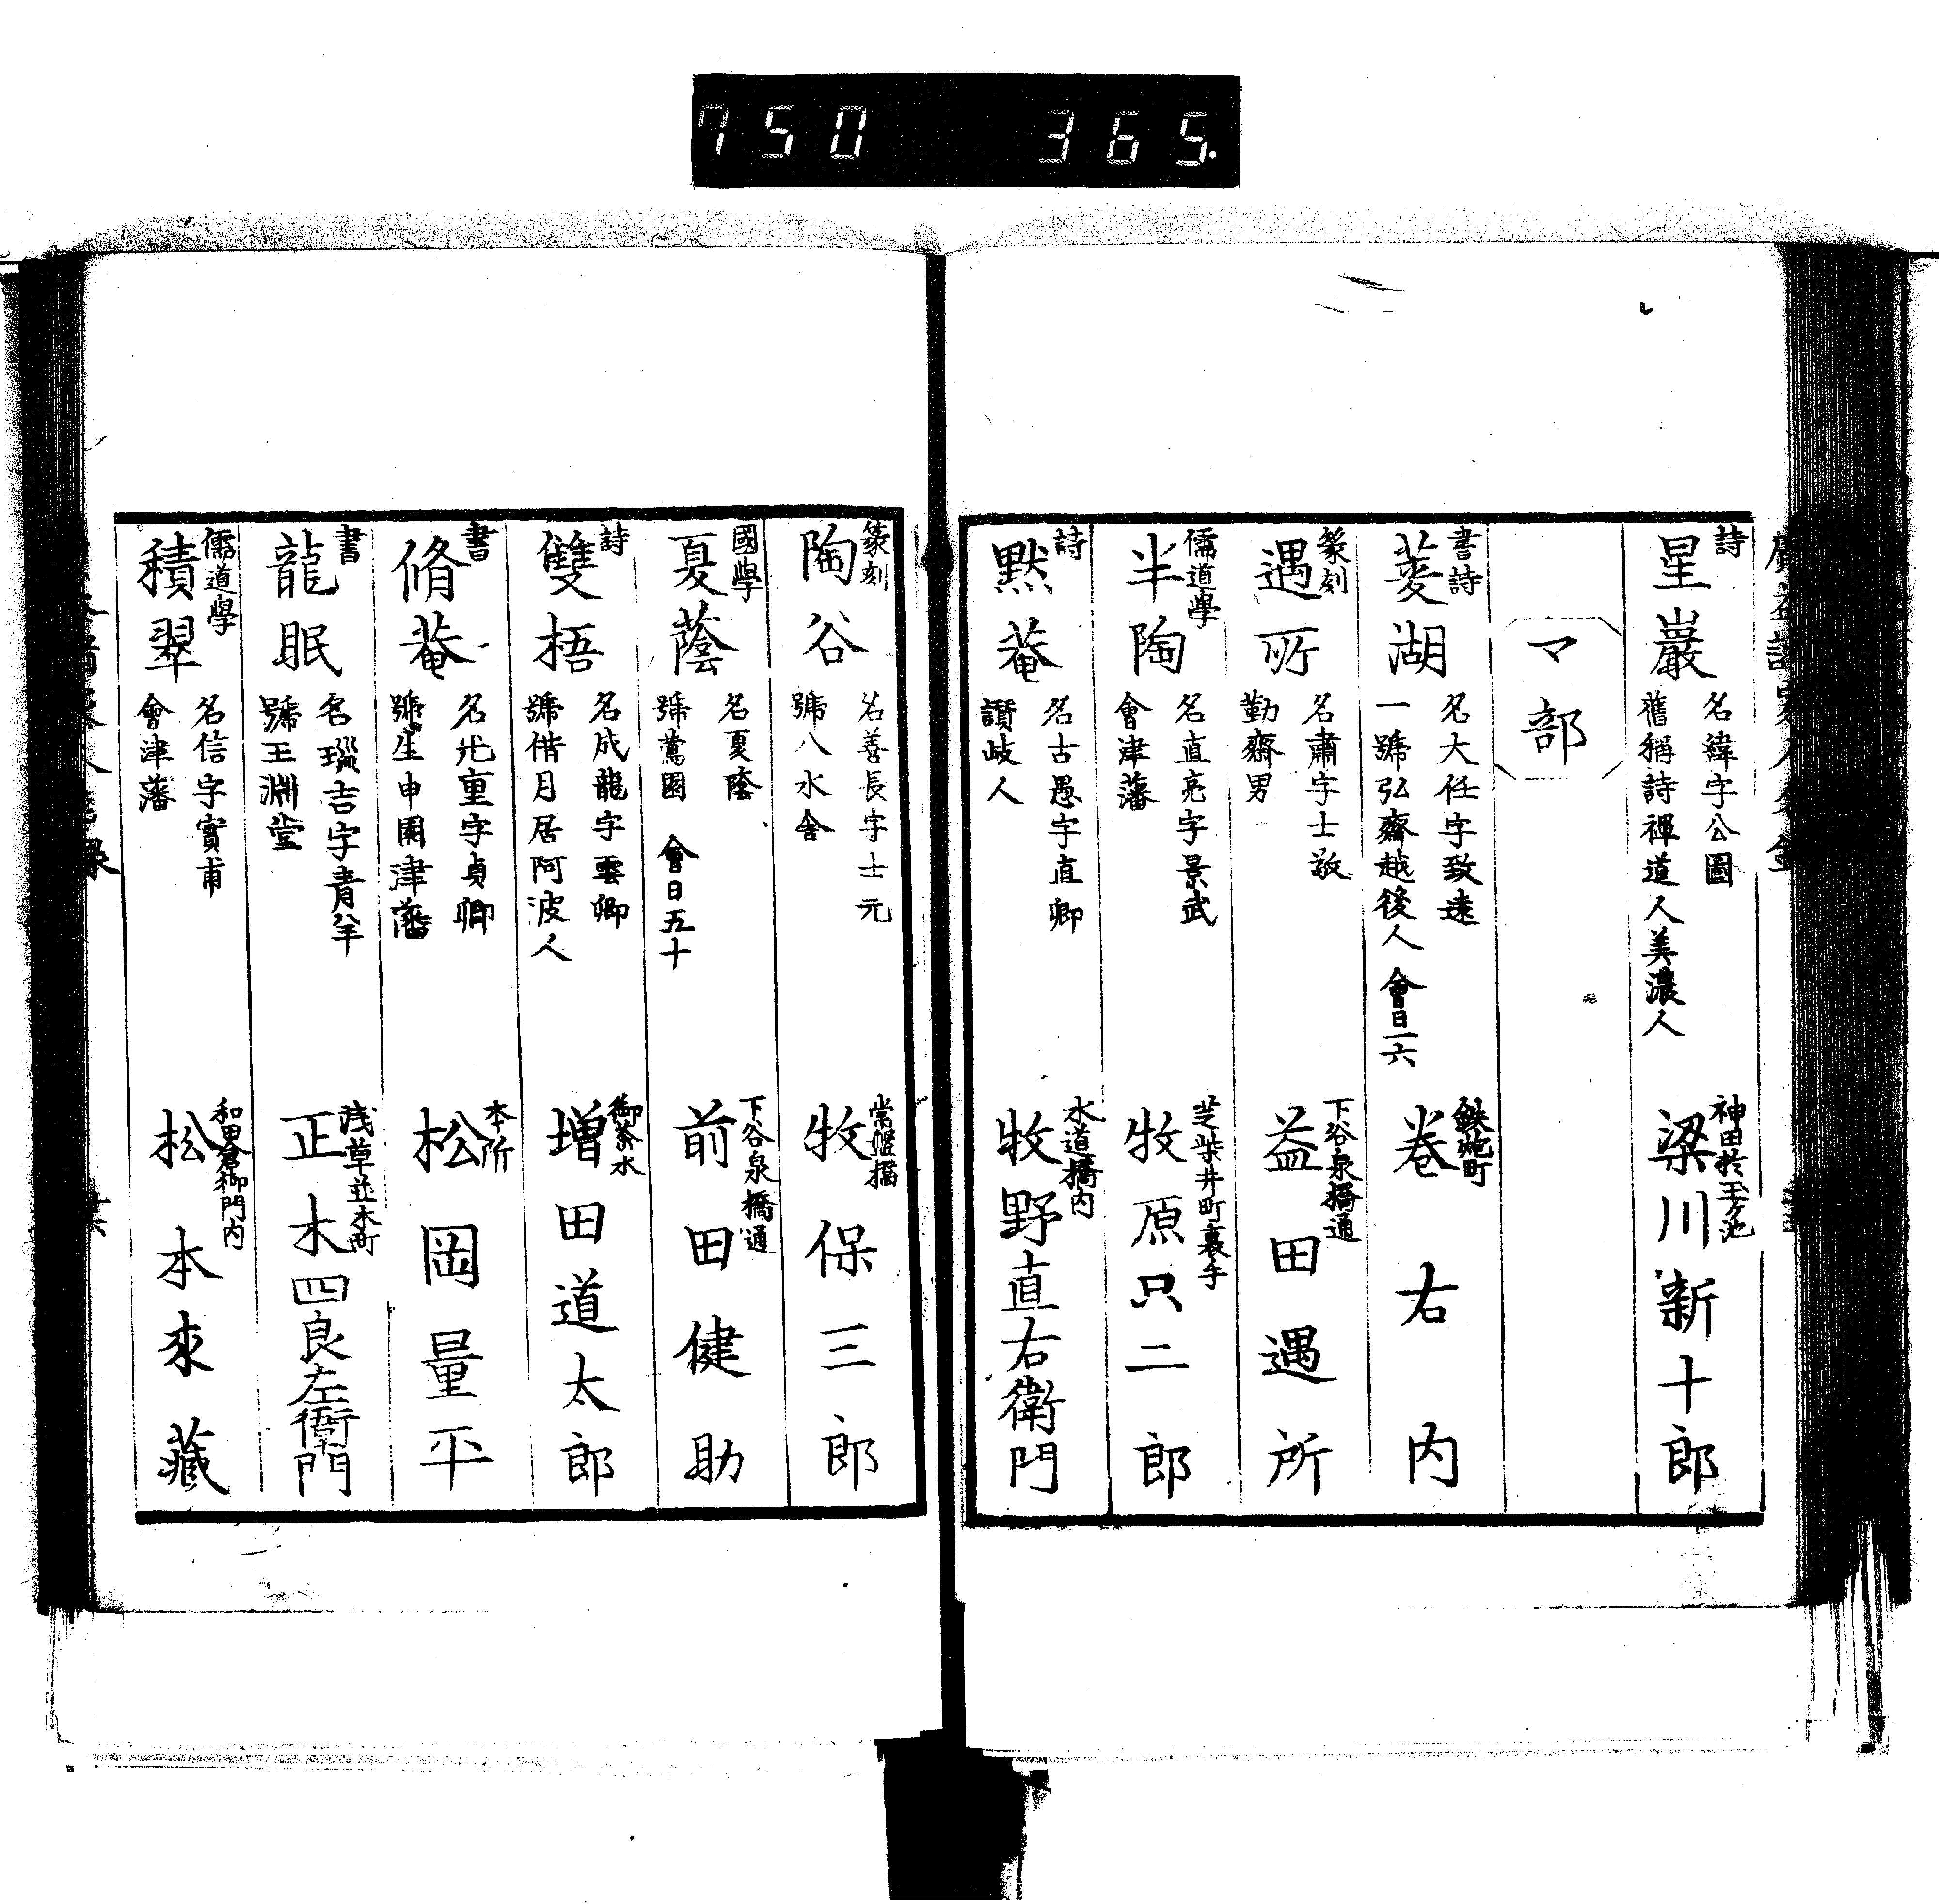 750 365.
詩
星巖
名緯字公圖
舊稱詩禪道人美濃人
神田於玉ケ池
梁川新十郎
マ部
書詩
菱湖
名大任字致遠
一號弘齋越後人 會日一六
鉄炮町
卷右内
篆刻
遇所
名肅字士敬
勤齋男
下谷泉橋通
益田遇所
儒道學
半陶
名直亮字景武
會津藩
芝柴井町裏手
牧原只二郎
詩
默菴
名古愚字直卿
讃岐人
水道橋内
牧野直右衛門
篆刻
陶谷
名善長字士元
號八水舍
常盤橋
牧保三郎
國學
夏蔭
名夏蔭
號鶯園 會日五十
下谷泉橋通
前田健助
詩
雙梧
名成龍字雲卿
號偕月居阿波人
御茶水
増田道太郎
書
脩菴
名光重字貞卿
號生申園津藩
本所
松岡量平
書
龍眠
名瑙吉字青羊
號玉淵堂
浅草並木町
正木四良左衛門
儒道學
積翠
名信字實甫
會津藩
和田倉御門内
松本來藏